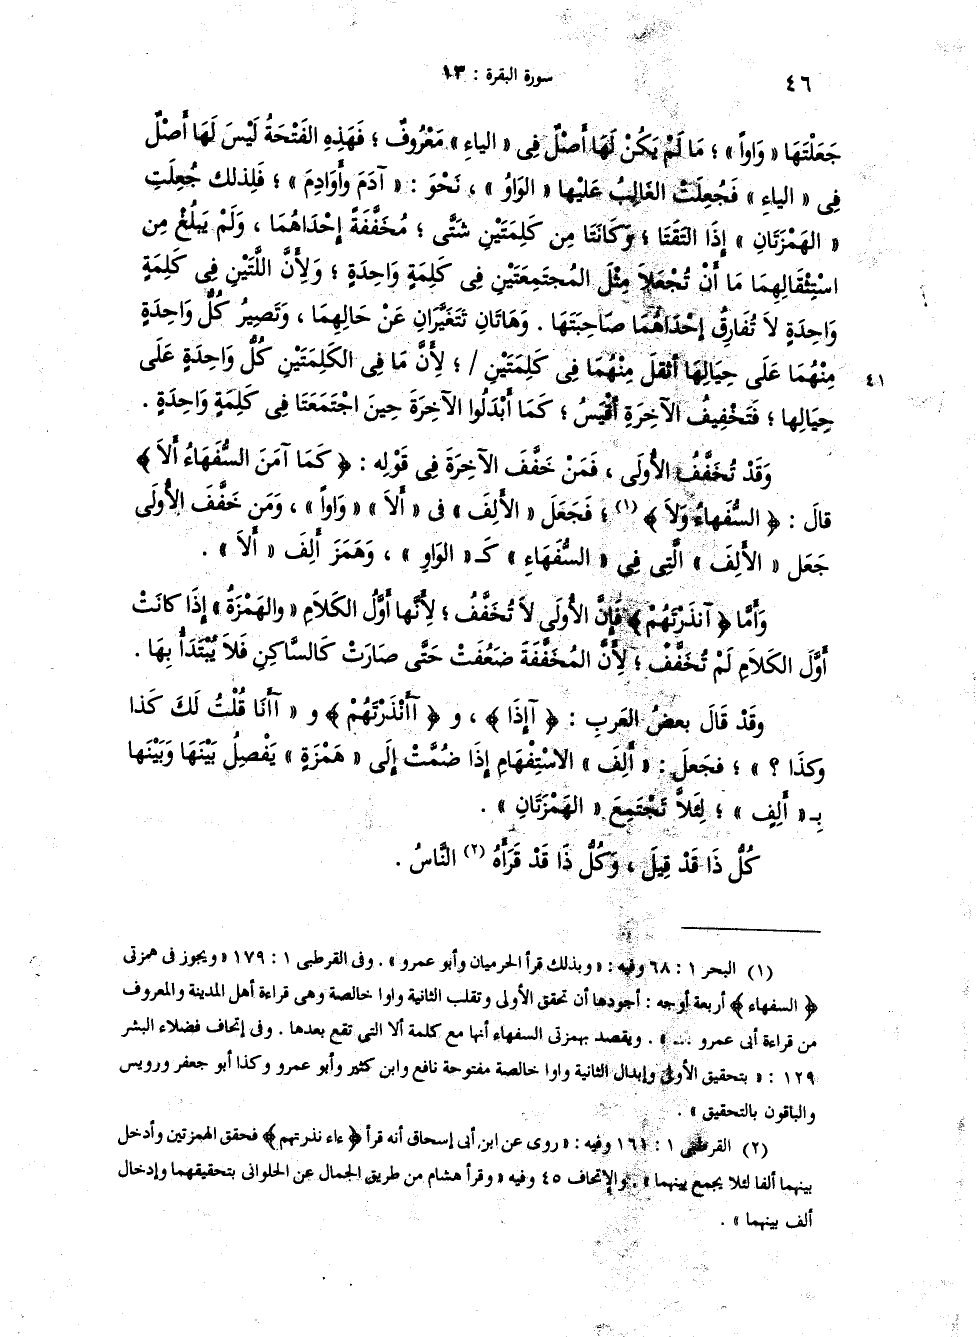 ٤٦
سورة البقرة : ١٣
جَعَلْتَهَا « وَاواً » ؛ مَا لَمْ يَكُنْ لَهَا أَصْلٌ فِى « الياءِ » مَعْرُوفٌ ؛ فَهَذِهِ الفَتْحَةُ لَيْسَ لَهَا أَصْلٌ
فِى « الياءِ » فَجُعِلَتْ الغَالِبُ عَلَيْها « الوَاوُ » ، نَحْوَ : « آدَمَ وأَوَادِمَ » ؛ فَلِذلك جُعِلَتِ
« الهَمْزَتَانِ » إِذَا التَقَتَا ؛ وَكَانَتَا مِن كَلِمَتَيْنِ شَتَّى ؛ مُخَفَّفَةً إِحْدَاهُمَا ، وَلَمْ يَبلُغْ مِن
اسْتِثْقَالِهِمَا مَا أَنْ تُجْعَلاَ مِثْلَ المُجتمِعَتَيْنِ فِى كَلِمَةٍ وَاحِدَةٍ ؛ وَلِأَنَّ اللَّتَيْنِ فِى كَلِمَةٍ
وَاحِدَةٍ لاَ تُفَارِقُ إِحْدَاهُمَا صَاحِبَتَهَا . وَهَاتَانِ تَتَغَيَّرَانِ عَنْ حَالِهِمَا ، وَتَصِيرُ كُلُّ وَاحِدَةٍ
مِنْهُمَا عَلَى حِيَالِهَا أثقلَ مِنْهُمَا فِى كَلِمَتَيْنِ / ؛ لِأَنَّ مَا فِى الكَلِمَتَيْنِ كُلُّ وَاحِدَةٍ عَلَى
٤١
حِيَالِها ؛ فَتَخْفِيفُ الآخِرَةِ أَقْيَسُ ؛ كَمَا أَبْدَلُوا الآخِرَةَ حِينَ اجْتَمَعَتَا فِى كَلِمَةٍ وَاحِدَةٍ .
وَقَدْ تُخَفَّفُ الأُولَى ، فَمَنْ خَفَّفَ الآخِرَةَ فِى قَوْلِه : ﴿ كَمَا آمَنَ السُّفَهَاءُ أَلاَ ﴾
قالَ : ﴿ السُّفَهاءُ وَلاَ ﴾ (١) ؛ فَجَعَلَ « الأَلِفَ » فى « أَلاَ » « وَاواً » ، وَمَن خَفَّفَ الأُولَى
جَعَل « الأَلِفَ » الَّتِى فِى « السُّفَهَاءِ » كَـ« الوَاوِ » ، وَهَمَزَ أَلِفَ « أَلاَ » .
وَأَمَّا ﴿ آنذَرْتَهُمْ ﴾ فَإِنَّ الأُولَى لاَ تُخَفَّفُ ؛ لِأَنَّها أَوَّلُ الكَلاَمِ « والهَمْزَةُ » إِذَا كانَتْ
أَوَّلَ الكَلاَمِ لَمْ تُخَفَّفْ ؛ لِأَنَّ المُخَفَّفَةَ ضَعُفَتْ حَتَّى صَارَتْ كَالسَّاكِنِ فَلاَ يُبْتَدَأُ بِهَا .
وَقَدْ قَالَ بعضُ العَربِ : ﴿ آإِذَا ﴾ ، و ﴿ آأَنْذَرْتَهُمْ ﴾ و « آأَنَا قُلْتُ لَكَ كَذا
وكذَا ؟ » ؛ فجَعلَ : « أَلِفَ » الاسْتِفْهَامِ إِذَا ضُمَّتْ إِلَى « هَمْزَةٍ » يَفْصِلُ بَيْنَهَا وَبَيْنَها
بِـ« أَلِفٍ » ؛ لِئَلاَّ تَجْتَمِعَ « الهَمْزَتَانِ » .
كُلُّ ذَا قَدْ قِيلَ ، وَكُلُّ ذَا قَدْ قَرَأَهُ (٢) النَّاسُ .
(١) البحر ١ : ٦٨ وفيه : « وبذلك قرأ الحرميان وأبو عمرو » . وفى القرطبى ١ : ١٧٩ « ويجوز فى همزتى
﴿ السفهاء ﴾ أربعة أوجه : أجودها أن تحقق الأولى وتقلب الثانية واوا خالصة وهى قراءة أهل المدينة والمعروف
من قراءة أبى عمرو ... » . ويقصد بهمزتى السفهاء أنها مع كلمة ألا التي تقع بعدها . وفى إتحاف فضلاء البشر
١٢٩ : « بتحقيق الأولى وإبدال الثانية واوا خالصة مفتوحة نافع وابن كثير وأبو عمرو وكذا أبو جعفر ورويس
والباقون بالتحقيق » .
(٢) القرطبى ١ : ١٦١ وفيه : « روى عن ابن أبى إسحاق أنه قرأ ﴿ ءاء نذرتهم ﴾ فحقق الهمزتين وأدخل
بينهما ألفا لئلا يجمع بينهما » . والإتحاف ٤٥ وفيه « وقرأ هشام من طريق الجمال عن الحلوانى بتحقيقهما وإدخال
ألف بينهما » .